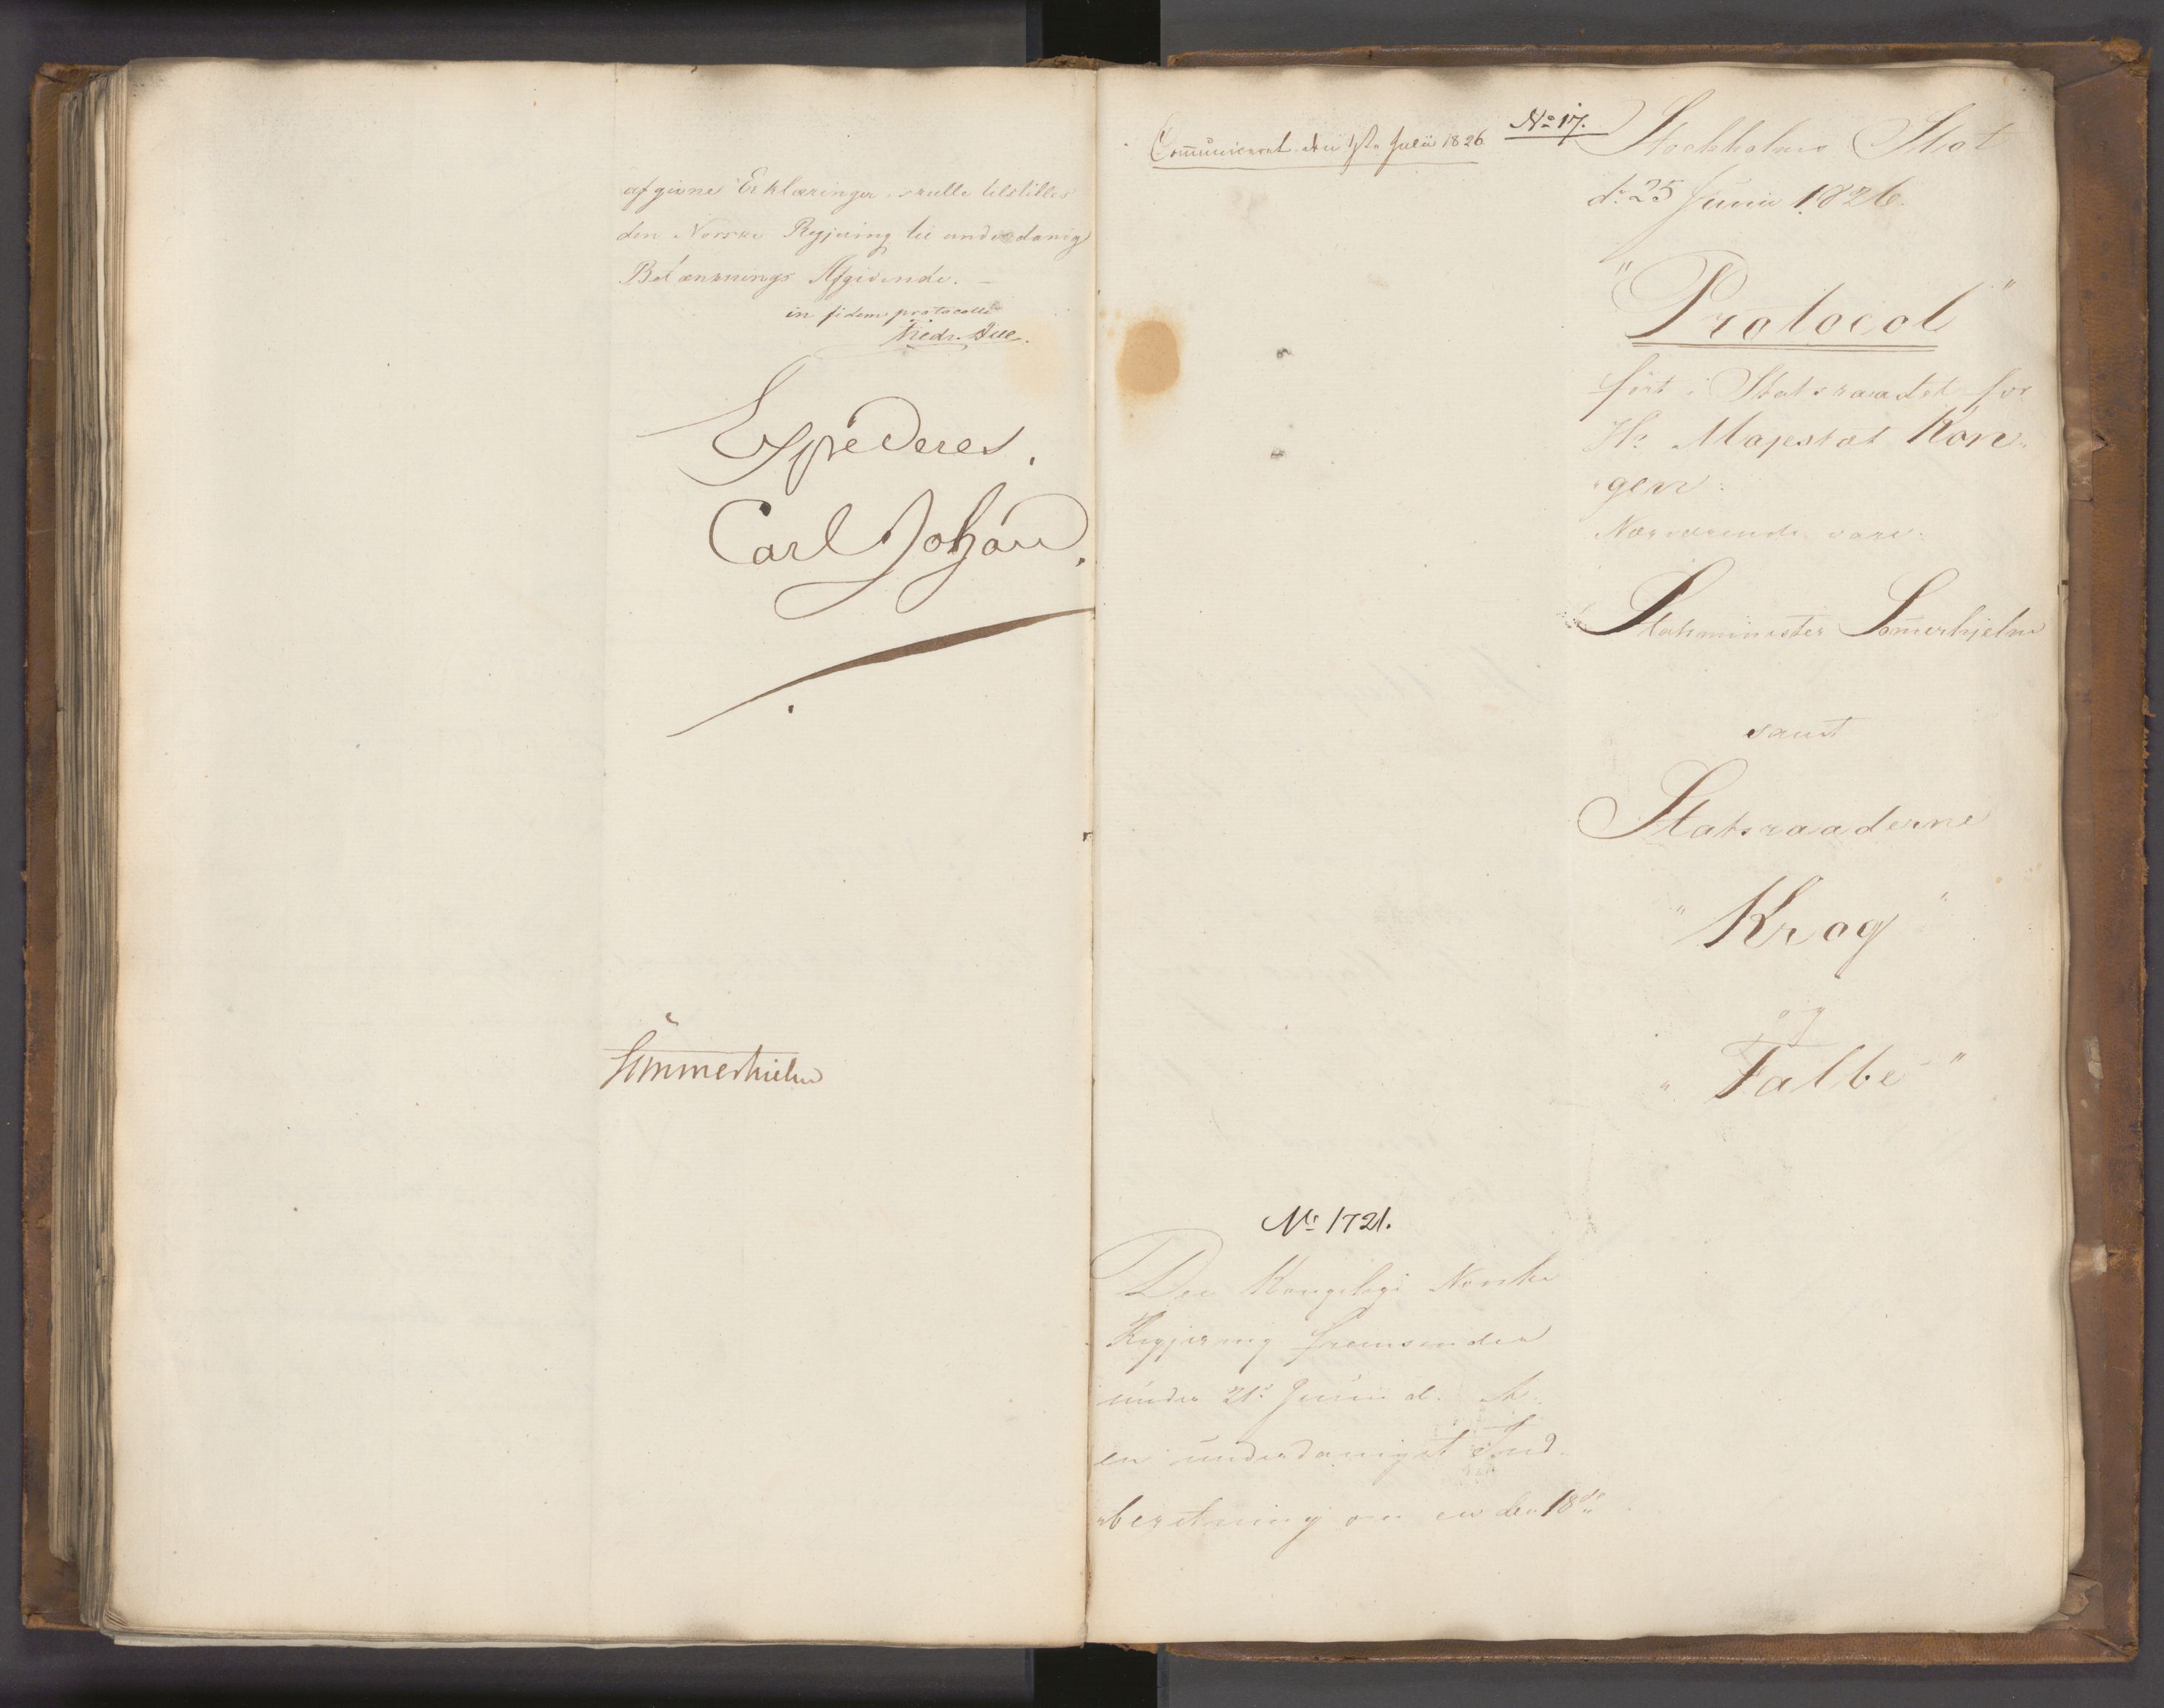 afgivne Erklæringer, skulle tilstilles
den Norske Regjering til underdanig
Betænknings Afgivende. –
in fidem protocolli
Fredr. Due.
Expederes.
Carl Johan.
Sømmerhielm
Com̅uniceret den 1ste Julii 1826
No 17.
Stockholms Slot
d. 25 Junii 1826.
"Protocol"
ført i Statsraadet for
Hs Majestæt Kon-
"gen.
Nærværende vare:
Statsminister Som̅erhjelm
samt
Statsraaderne
"Krog"
og
"Falbe"
No 1721.
Den Kongelige Norske
Regjering fremsender
under 21de Junii d. A.
en underdanigst Ind-
"beretning om en den 18de